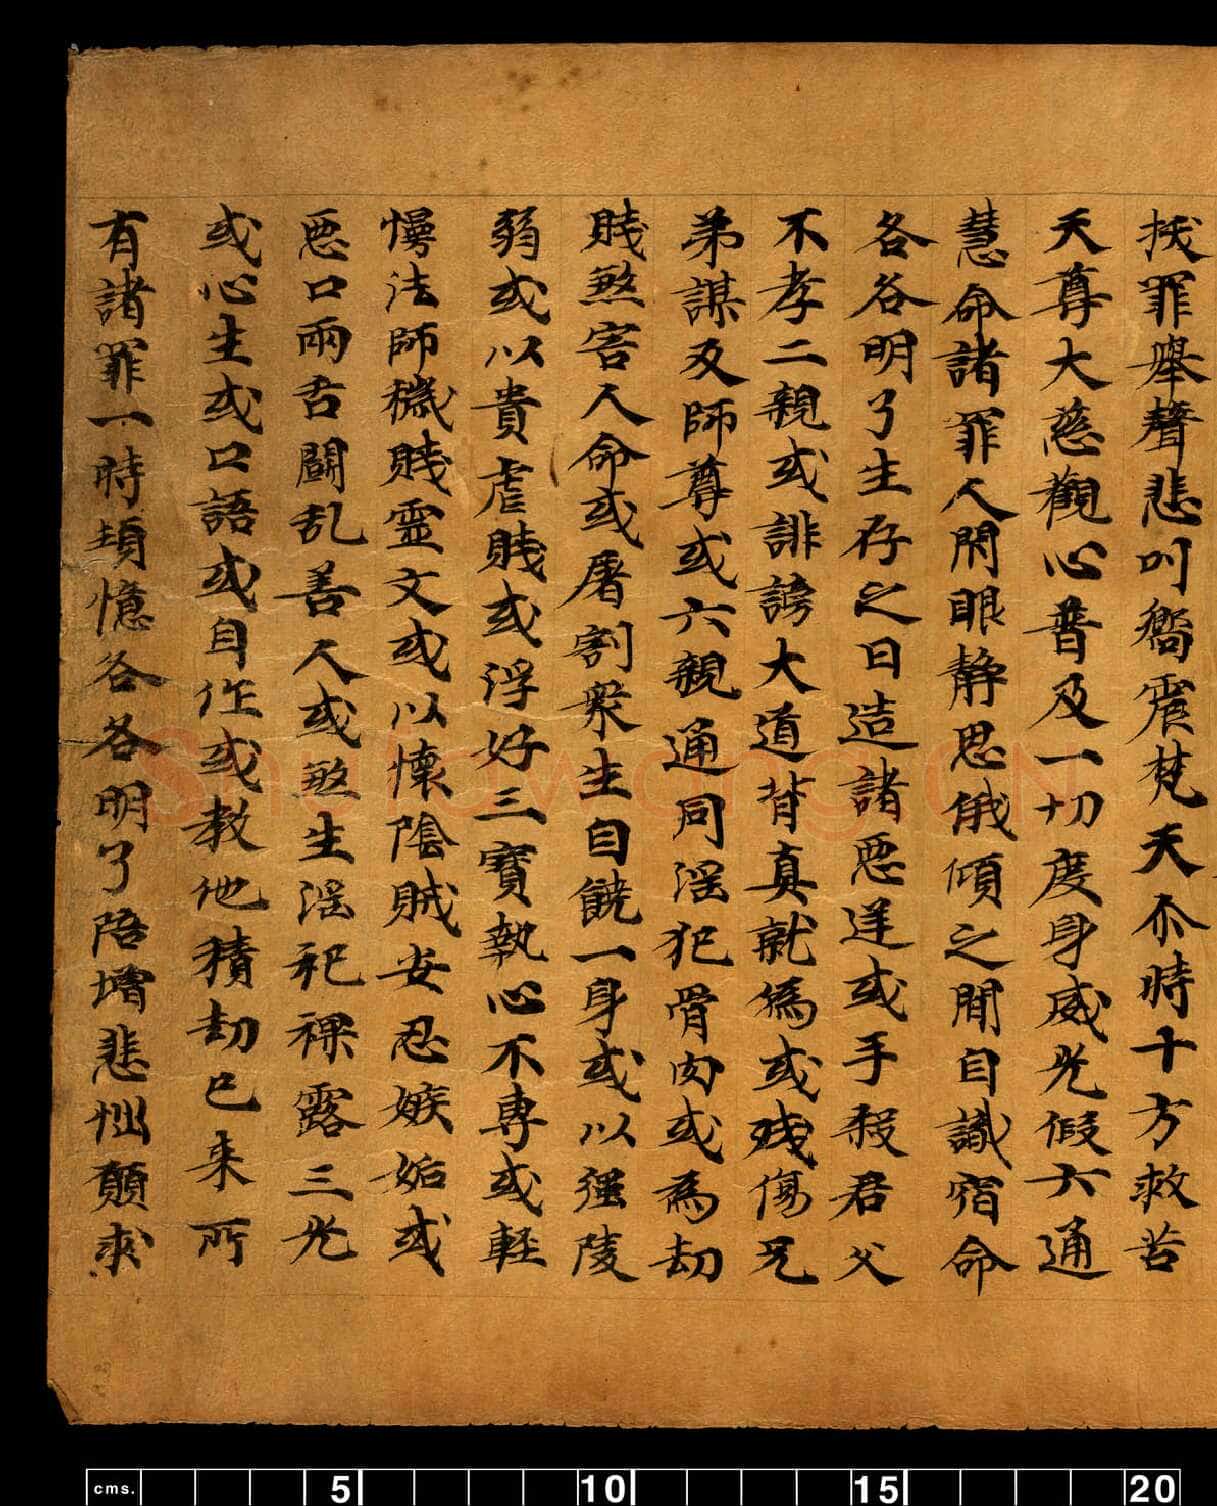 拔罪舉聲悲叫嚮震梵天尒時十方救苦
天尊大慈觀心普及一切度身威光假六通
慧命諸罪人閇眼靜思俄傾之間自識宿命
各各明了生存之日造諸惡逆或手殺君父
不孝二親或誹謗大道背真就僞或殘傷兄
弟謀及師尊或六親通同淫犯骨肉或為劫
賤煞害人命或屠割衆生自饒一身或以強陵
弱或以貴虐賤或浮好三寶執心不專或輕
慢法師穢賤靈文或以懷陰賊安忍嫉妬或
惡口兩舌鬬乱善人或煞生淫祀裸露三光
或心生或口語或自作或教他積劫已来所
有諸罪一時頓憶各各明了陪增悲惱願求
Shufawang.CN
cms. 5 10 15 20